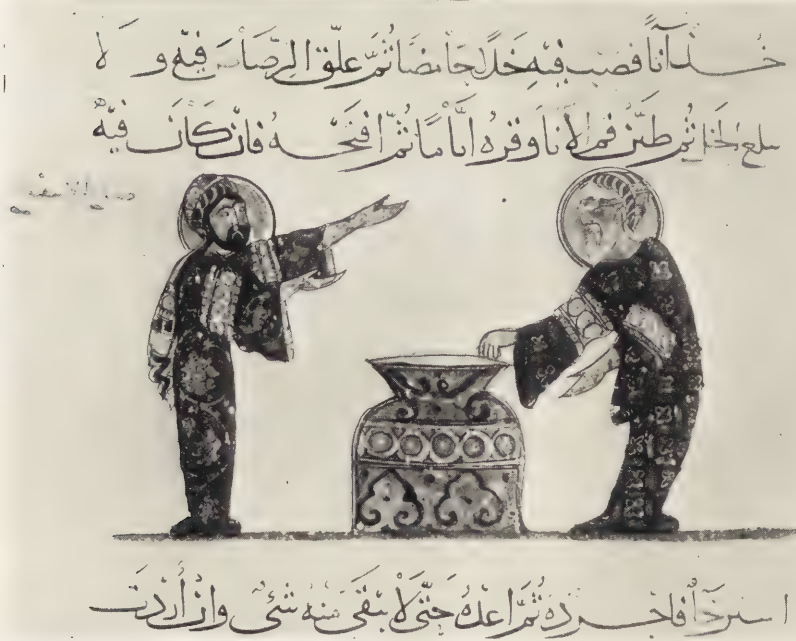 خُذ آناً فصب فيهِ خَلاً حَامضَا ثُمَّ علّق الرصَاصَ فيه و لا
الخل ثم طيّن فم الأنا وقره ايَّامًا ثُمَّ افتحه فان كَانَ فيه
فاجرده ثُمَّ اعدْهُ حَتّى لاْ يبقَى منه شئ وان أردت